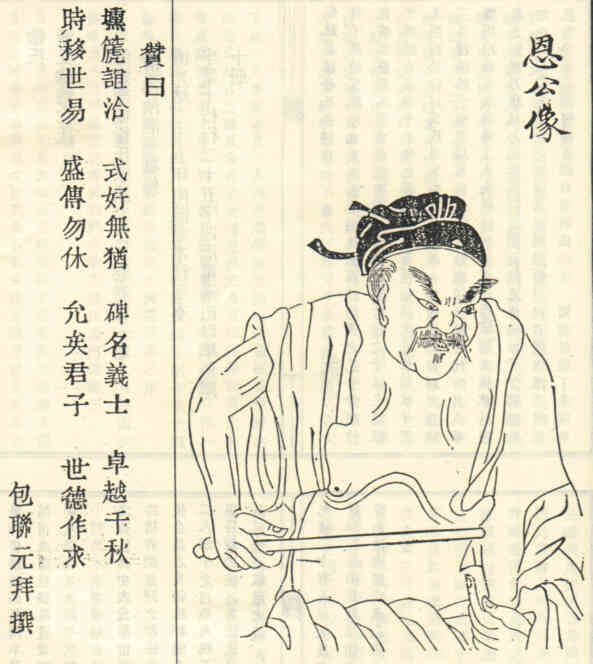 恩公像
贊曰
壎篪詛洽 式好無猶 碑名義士 卓越千秋
時移世易 盛傳勿休 允矣君子 世德作求
包聯元拜撰